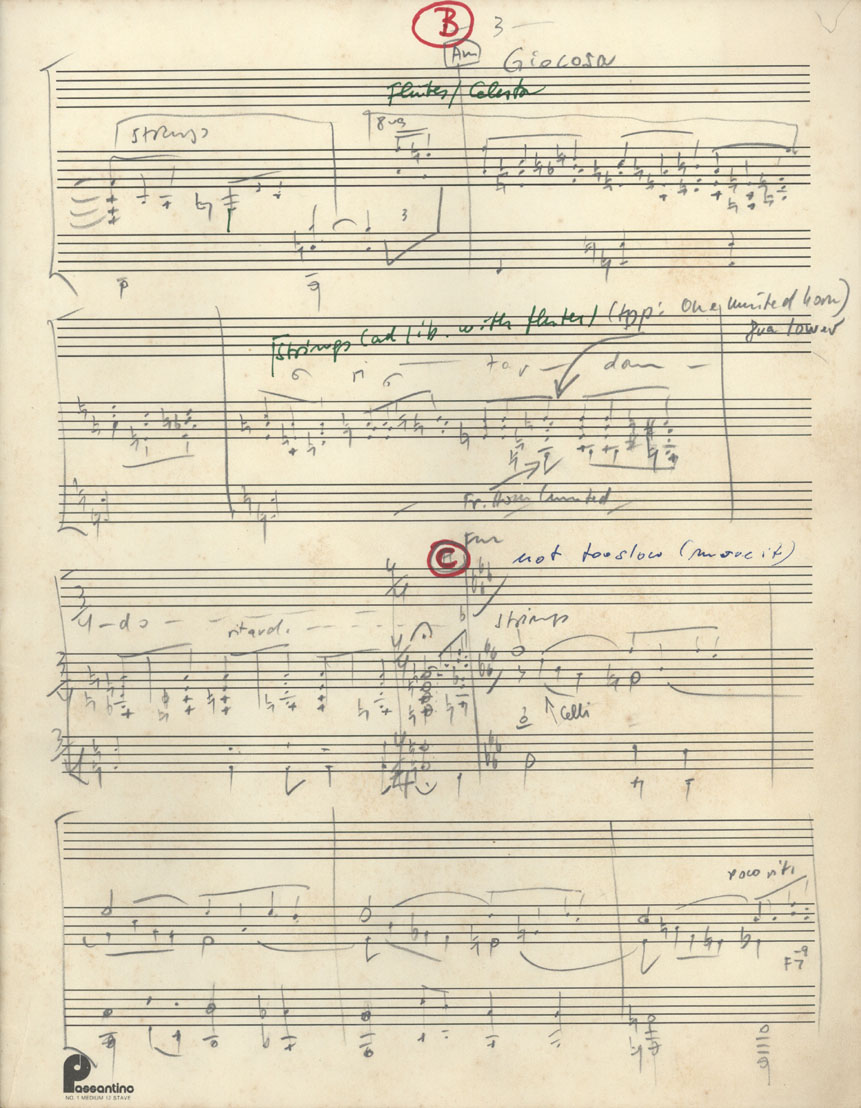 B - 3 -
Am Giocosa
Flutes/Celesta
strings 8va
3
Strings (ad lib. with flutes) (opp: one muted horn)
8va lower
Fr. Horn (muted
C Fm not too slow (move it)
4 - do - - -
ritard. - - -
strings
Celli
poco rit.
F7-9
Passantino
NO. 1 MEDIUM 12 STAVE